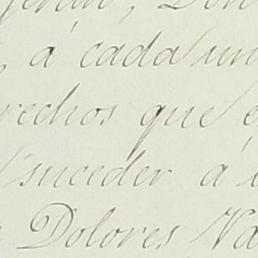 á cada un
rechos que e
suceder á
Dolores Va